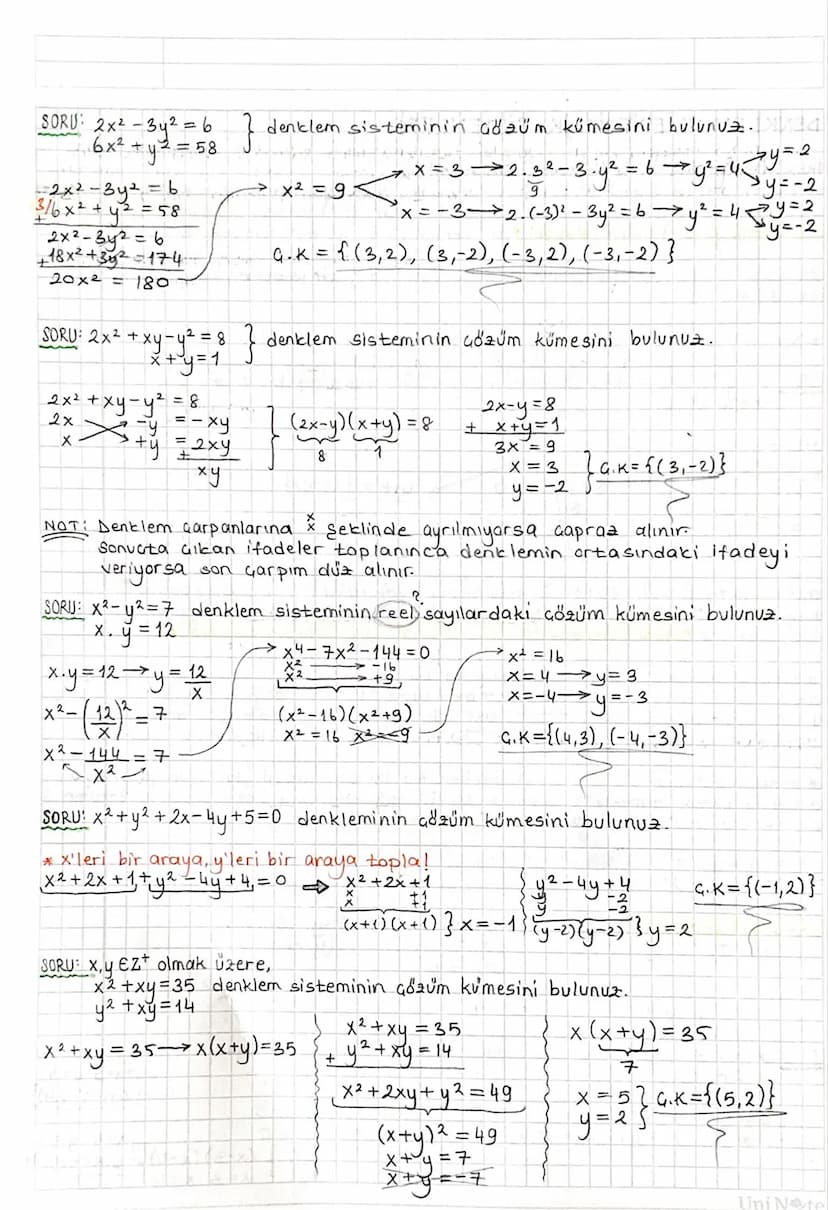 SORU: 2x² - 3y² = 6
6x² + y² = 58 } denklem sisteminin çözüm kümesini bulunuz.
2x² - 3y² = 6
3/ 6x² + y² = 58
2x² - 3y² = 6
+ 18x² + 3y² = 174
20x² = 180
x² = 9
x = 3 → 2.3² - 3.y² = 6 → y² = 4 y = 2
9
y = -2
x = -3 → 2.(-3)² - 3y² = 6 → y² = 4 y = 2
y = -2
Ç.K = {(3,2), (3,-2), (-3,2), (-3,-2)}
SORU: 2x² + xy - y² = 8
x + y = 1 } denklem sisteminin çözüm kümesini bulunuz.
2x² + xy - y² = 8
2x -y = -xy
x +y = 2xy
+
xy
(2x-y)(x+y) = 8
8 1
2x - y = 8
+ x + y = 1
3x = 9
x = 3
y = -2 } Ç.K = {(3,-2)}
NOT: Denklem çarpanlarına x x şeklinde ayrılmıyorsa çapraz alınır.
Sonuçta çıkan ifadeler toplanınca denklemin ortasındaki ifadeyi
veriyorsa son çarpım düz alınır.
?
SORU: x² - y² = 7 denklem sisteminin reel sayılardaki çözüm kümesini bulunuz.
x.y = 12
x.y = 12 → y = 12/x
x² - (12/x)² = 7
x² - 144/x² = 7
x⁴ - 7x² - 144 = 0
x² → -16
x² → +9
(x² - 16)(x² + 9)
x² = 16 x² = -9
x² = 16
x = 4 → y = 3
x = -4 → y = -3
Ç.K = {(4,3), (-4,-3)}
SORU: x² + y² + 2x - 4y + 5 = 0 denkleminin çözüm kümesini bulunuz.
* x'leri bir araya, y'leri bir araya topla!
x² + 2x + 1 + y² - 4y + 4 = 0 ⇒
x² + 2x + 1
x +1
x +1
(x+1)(x+1) } x = -1
y² - 4y + 4
y -2
y -2
(y-2)(y-2) } y = 2
Ç.K = {(-1,2)}
SORU: x,y ∈ Z⁺ olmak üzere,
x² + xy = 35 denklem sisteminin çözüm kümesini bulunuz.
y² + xy = 14
x² + xy = 35 → x(x+y) = 35
x² + xy = 35
+ y² + xy = 14
x² + 2xy + y² = 49
(x+y)² = 49
x + y = 7
x + y = -7
x(x+y) = 35
7
x = 5
y = 2 } Ç.K = {(5,2)}
UniNote